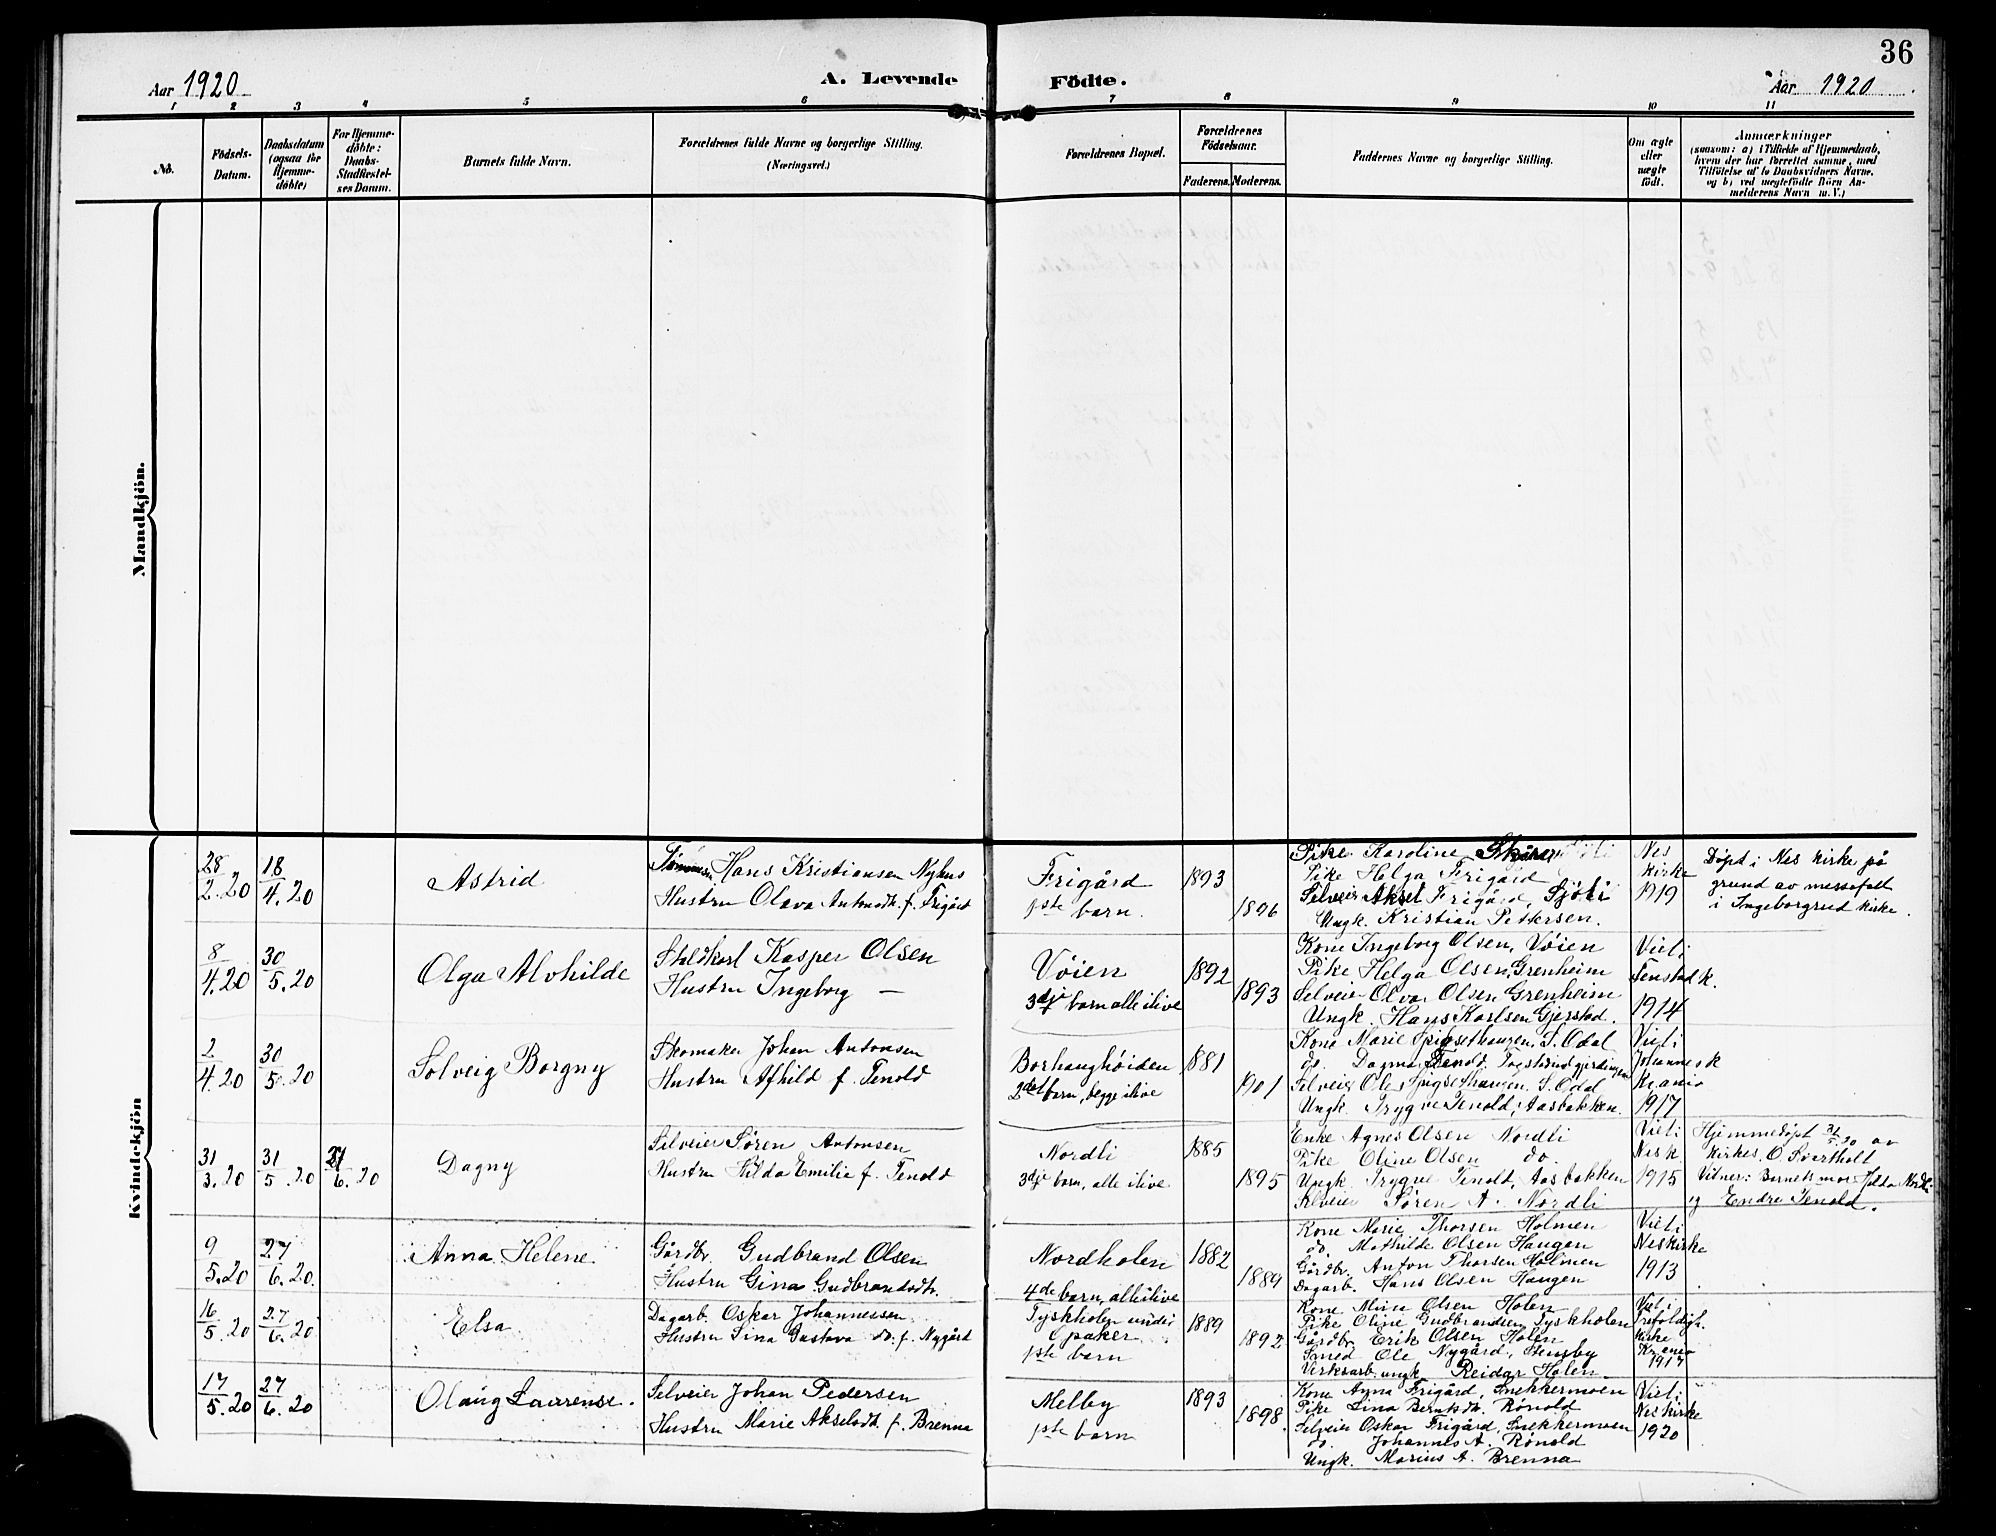 36
Aar 1920
A. Levende
Födte.
Aar 1920
1 2 3 4 5 6 7 8 9 10 11
No.
Födsels-
Datum.
Daabsdatum
(ogsaa for
Hjemme-
döbte)
For Hjemme-
döbte:
Daabs-
Stadfæstel-
ses Datum.
Barnets fulde Navn.
Forældrenes fulde Navne og borgerlige Stilling.
(Næringsvei.)
Forældrenes Bopæl.
Forældrenes
Födselsaar.
Faderens.
Moderens.
Faddernes Navne og borgerlige Stilling.
Om ægte
eller
uægte
født.
Anmærkninger
(saasom: a) i Tilfælde af Hjemmedaab,
hvem der har forrettet samme, med
Tilföielse af to Daabsvidners Navne,
og b) ved uægtefödte Börn An-
melderens Navn m. V.)
Mandkjön.
Kvindekjön
28/2.20
18/4.20
Astrid
Hans Kristiansen Nyhus
Hustru Olava Antonsdt. f. Frigård
Frigård
1ste barn.
1893
1896
Pike Karoline
Pike Helga Frigård
Selveier Aksel Frigård, Sjøli
Ungk. Kristian Pettersen.
Nes
Kirke
1919
Døpt i Nes Kirke på
grund av messefall
i Ingeborgrud Kirke.
8/4.20
30/5.20
Olga Alvhilde
Stldkarl Kasper Olsen
Hustru Ingeborg —
Vøien
3dje barn alle ilive
1892
1893
Kone Ingeborg Olsen, Vøien
Pike Helga Olsen, Grenheim
Selveier Olva Olsen Grenheim
Ungk. Hans Karlsen Gjerstad.
Viet i
Tenstad k.
1914
2/4.20
30/5.20
Solveig Borgny
Skomaker Johan Antonsen
Hustru Afhild f. Tenold
Borhaughøiden
2det barn, begge ilive
1881
1901
Kone Marie Spigsethaugen, S. Odal
do. Dagmar Tenold.
Selveier Ole Spigsethaugen, S. Odal
Ungk. Trygve Tenold, Aasbakken.
Viet i
Johannesk
Kr.ania
1917
31/3.20
31/5.20
/6.20
Dagny
Selveier Søren Antonsen
Hustru Hilda Emilie f. Tenold
Nordli
3dje barn, alle ilive
1885
1895
Enke Agnes Olsen Nordli
Pike Oline Olsen do.
Ungk. Trygve Tenold, Aasbakken
Selveier Søren A. Nordli
Viet i
Nes k
1915
Hjemmedøpt 31/5.20 av
Kirkes. O. Svartholt
Vitner: Barnets mor Hilda Nordli
og Endre Tenold.
9/5.20
27/6.20.
Anna Helene
Gårdbr. Gudbrand Olsen
Hustru Gina Gudbrandsdtr.
Nordholen
4de barn, alle ilive
1882
1889
Kone Marie Thorsen Holmen
do. Mathilde Olsen Haugen
Gårdbr. Anton Thorsen Holmen
Dagarb. Hans Olsen Haugen
Viet i
Nes kirke
1913
16/5.20
27/6.20.
Elsa
Dagarb. Oskar Johannessen
Hustru Lina Gustava do. f. Nygård
Tyskholen under
1ste barn
1889
1892
Kone Mina Olsen Holen
Pike Oline Gudbrandsen Tyskholen
Gårdbr. Erik Olsen Holen
Smed Ole Nygård, Stensby
Verksarb. ungk. Reidar Holen
Viet i
Trefoldigh.
kirke
Kr.ania
1917
17/5.20
27/6.20
Olaug Laurense.
Selveier Johan Pedersen
Hustru Marie Akselsdt. f. Brenna
Melby
1ste barn
1893
1898.
Kone Anna Frigård, Snekkermoen
Pike Lina Berntsdt. Rønold
Selveier Oskar Frigård, Snekkermoen
do. Johannes A. Rønold
Ungk. Marius A. Brenna
Viet i
Nes kirke
1920